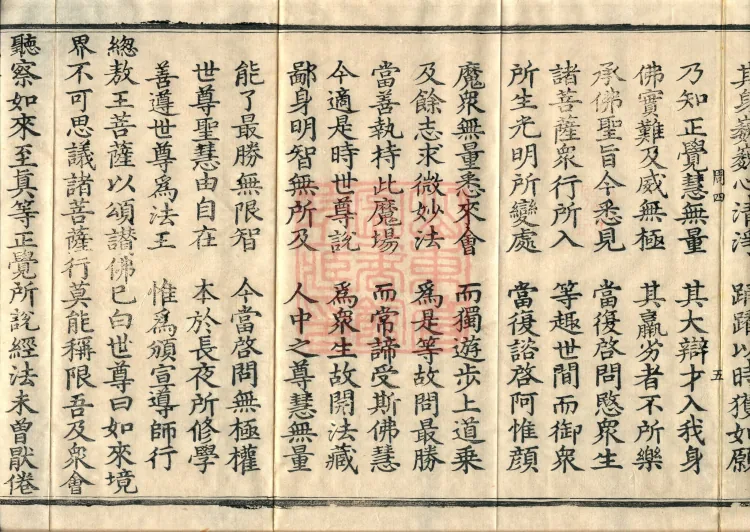 其身巍巍心清淨 蹈躇以時獲如願
周四 五
乃知正覺慧無量 其大辯才入我身
佛實難及威無極 其羸劣者不所樂
承佛聖旨今悉見 當復啓問愍衆生
諸菩薩衆行所入 等趣世間而御衆
所生光明所變處 當復諮啓阿惟顏
魔衆無量悉來會 而獨遊步上道乘
及餘志求微妙法 爲是等故問最勝
當善執持此魔場 而常諦受斯佛慧
今適是時世尊說 爲衆生故開法藏
鄙身明智無所及 人中之尊慧無量
能了最勝無限智 今當啓問無極權
世尊聖慧由自在 本於長夜所修學
善遵世尊爲法王 惟爲頒宣導師行
緫敖王菩薩以頌讃佛已白世尊曰如來境
界不可思議諸菩薩行莫能稱限吾及衆會
聽察如來至眞等正覺所說經法未曾猒倦